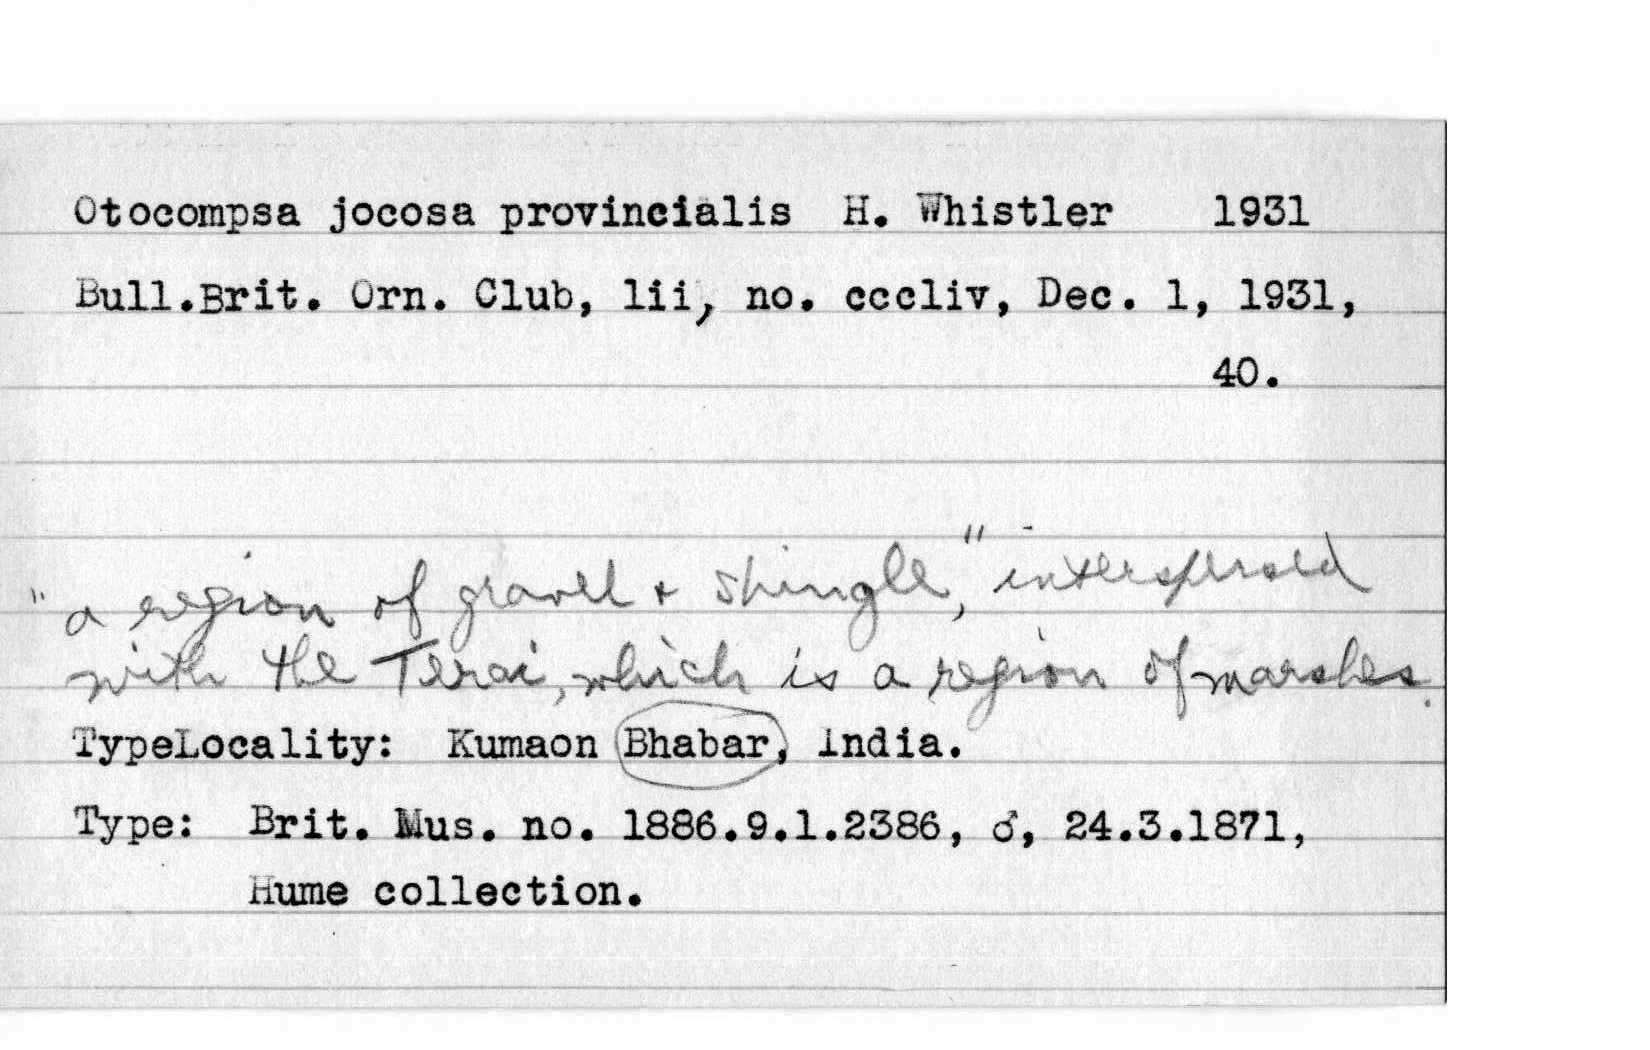 Otocompsa jocosa provincialis H. Whistler 1931
Bull.Brit. Orn. Club, lii, no. cccliv, Dec. 1, 1931,
40.
"a region of gravel + shingle," interspersed
with the Terai, which is a region of marshes.
TypeLocality: Kumaon Bhabar, India.
Type: Brit. Mus. no. 1886.9.1.2386, ♂, 24.3.1871,
Hume collection.